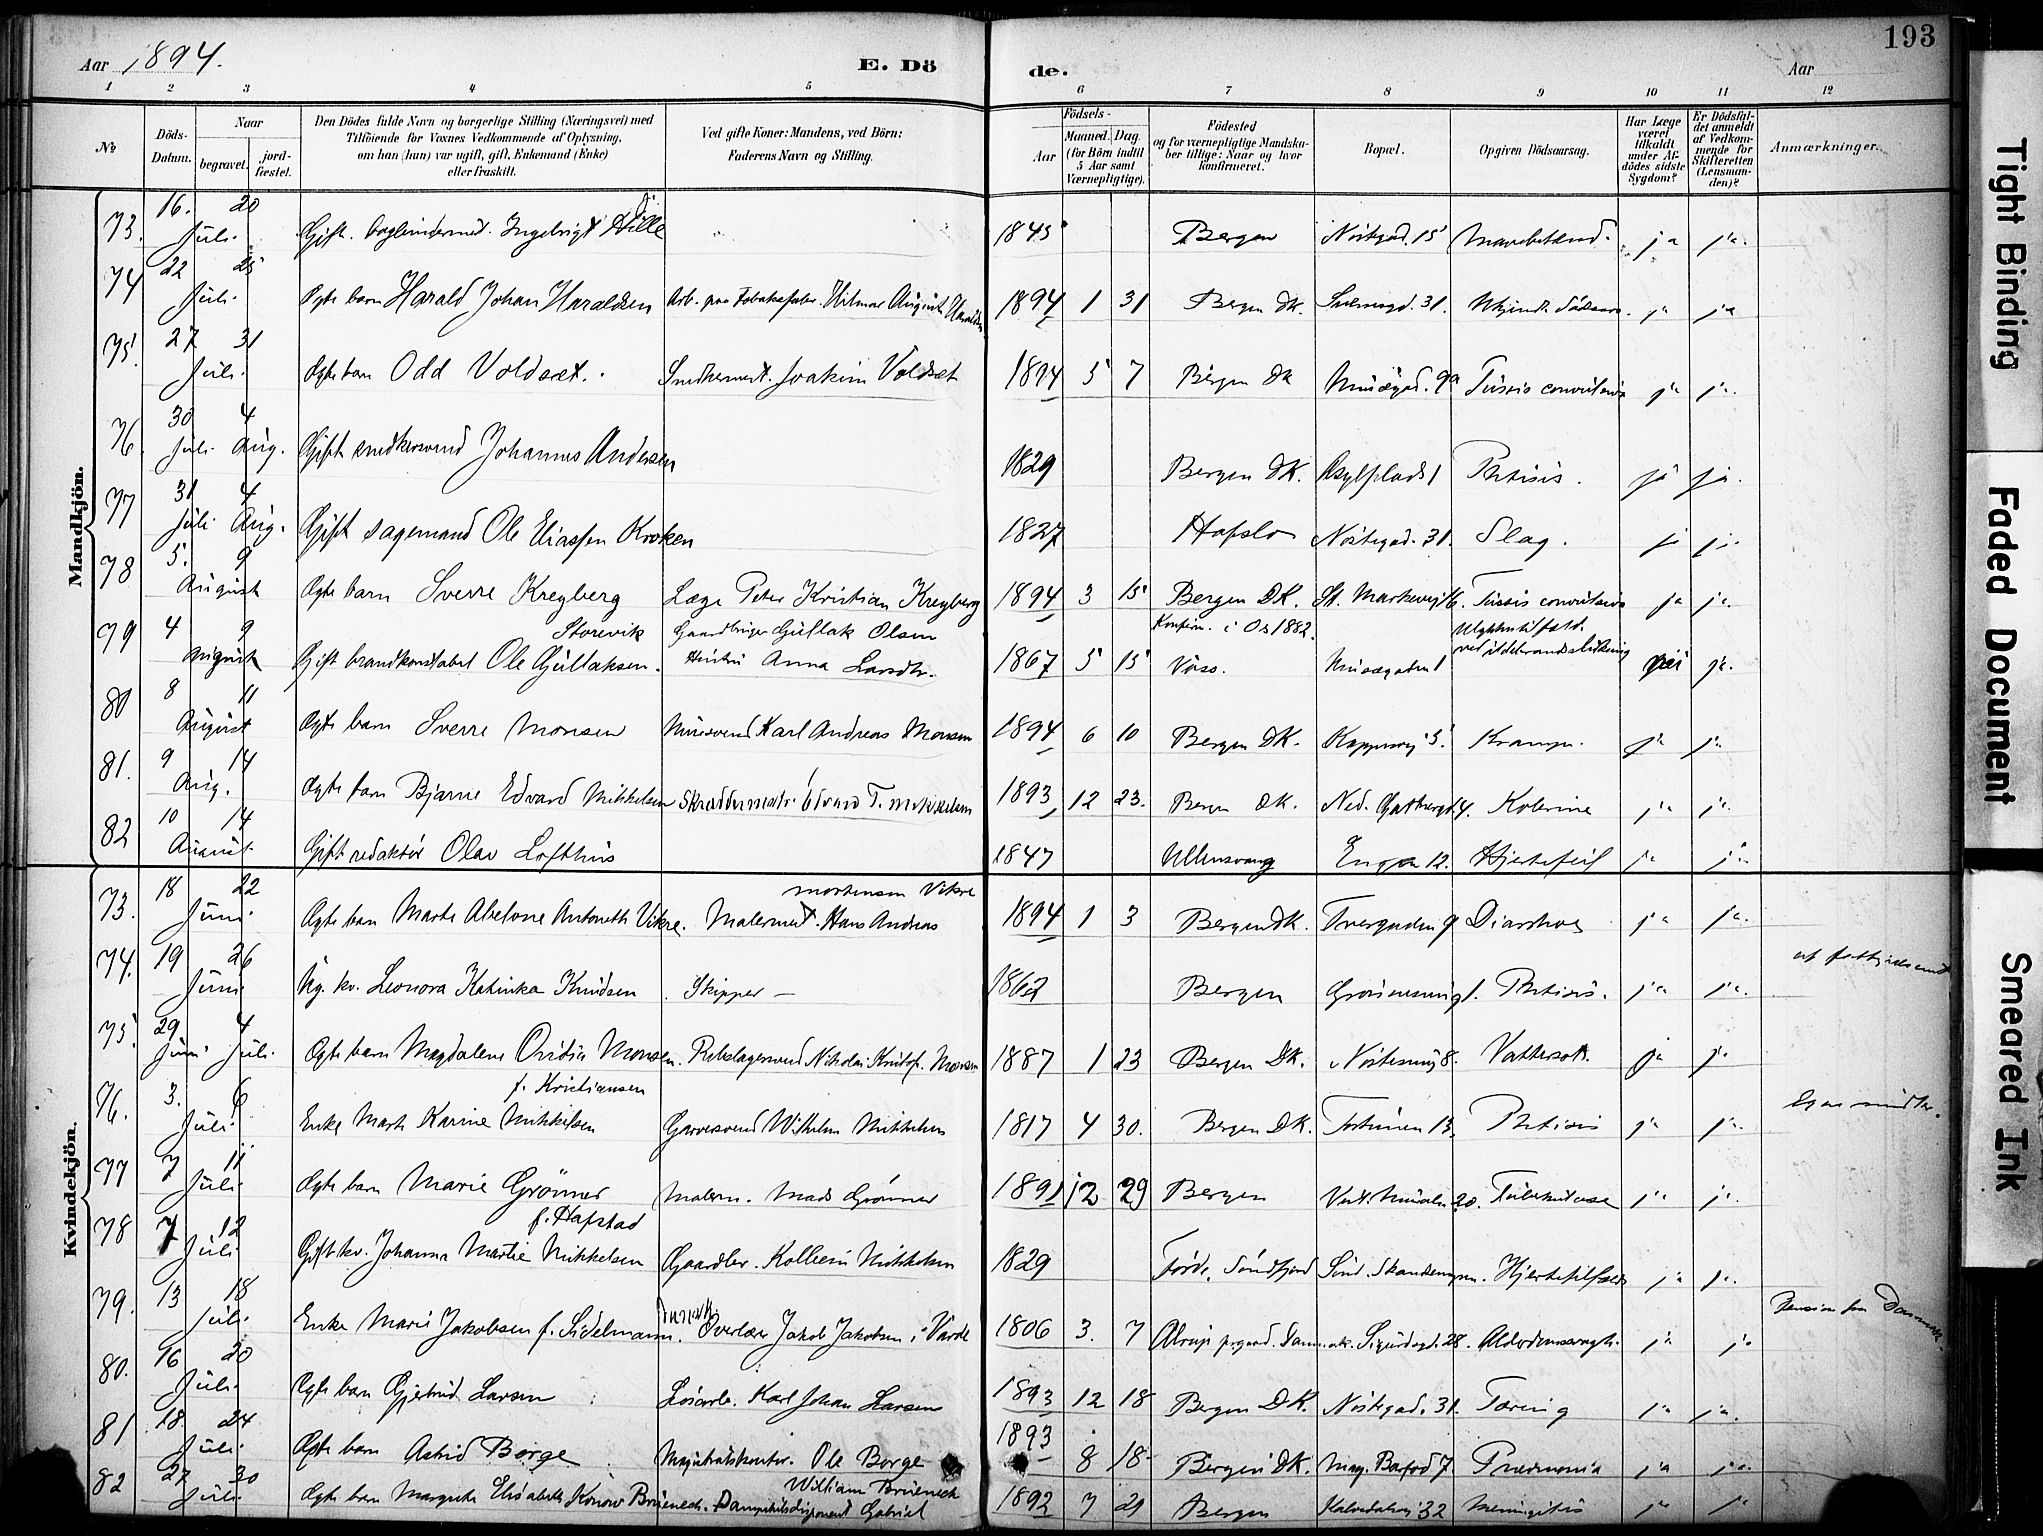 Aar 1894.
E. Dö
de.
Aar
193
1 2 3 4 5 6 7 8 9 10 11 12
№
Döds-Datum.
Naar
begravet.
jord-fæstet.
Den Dödes fulde Navn og borgerlige Stilling (Næringsvei) med
Tilföiende for Voxnes Vedkommende af Oplysning,
om han (hun) var ugift, gift, Enkemand (Enke)
eller fraskilt.
Ved gifte Koner: Mandens, ved Börn:
Faderens Navn og Stilling.
Födsels-
Aar
Maaned. Dag.
(for Börn indtil
5 Aar samt
Værnepligtige).
Födested
og for værnepligtige Mandska-
ber tillige: Naar og hvor
konfirmeret.
Bopæl.
Opgiven Dödsaarsag.
Har Læge
været
tilkaldt
under Af-
dödes sidste
Sygdom?
Er Dödsfal-
det anmeldt
af Vedkom-
mende for
Skifteretten
(Lensman-
den)?
Anmærkninger.
Mandkjön.
73. 16. 20 Juli. Gift. Ingebrigt Hille 1845 Bergen Nöstegad. 15 ja ja.
74 22 25 Juli. Ægte barn Harald Johan Haraldsen Arb. paa Tobaksfabr. Hilmar August Haraldsen 1894 1 31 Bergen DK. 31. ja ja
75. 27 31 Juli. Ægte barn Odd Voldsæt. Snedkermest. Joakim Voldsæt 1894 5 7 Bergen DK Museegad. 9a Tussis convulsiva ja ja.
76. 30 Juli. 4 Aug. Gift snedkersvend Johannes Andersen 1829 Bergen DK. Asylplads 1 Phtisis. ja ja.
77 31 Juli 4 Aug. Gift sagemand Ole Eliassen Kroken 1827 Hafslo Nöstegad. 31. Slag. ja ja.
78 5. 9 August Ægte barn Sverre Kreyberg Læge Peter Kristian Kreyberg 1894 3 15 Bergen DK. St. Markevei 16. Tussis convulsiva ja ja.
79 4 9 August Gift brandkonstabel Ole Gullaksen Storevik. Gaardbruger Gullak Olsen Hustru Anna Larsdtr. 1867 5 15 Konfirm. i Os 1882. Voss. Museegaten 1 Ulykkestilfæld. ved ildebrandsslukning nei ja.
80 8 11 August Ægte barn Sverre Monsen Muresvend Karl Andreas Monsen 1894 6 10 Bergen DK. 5. Krampe. ja ja.
81. 9 14 Aug. Ægte barn Bjarne Edvard Mikkelsen Skreddermestr. Edvard T. Mikkelsen 1893 12 23. Bergen DK. Ned. 4. Kolerine ja ja.
82 10 14 August. Gift redaktör Olav Lofthus 1847 Ullensvang Engen 12. Hjertefeil ja ja.
Kvindekjön.
73. 18 22 Juni. Ægte barn Marta Abelone Antonette Vikre. Malermest. Hans Andreas Mortensen Vikre 1894 1 3 Bergen DK. Tvergaden 9 Diarrhoe ja ja.
74. 19 26 Juni Ug. kv. Leonora Katinka Knudsen Skipper — 1862 Bergen 1. Phtisis. ja ja.
75. 29 Juni 4 Juli. Ægte barn Magdalene Ovidia Monsen. Rebslagersvend Nikolai Kristof. Monsen 1887 1 23 Bergen DK. Nöstesmug 8. Vattersot. ja ja
76. 3. 6 Juli. Enke Marte Karine Mikkelsen f. Kristiansen Garvesvend Wilhelm Mikkelsen 1817 4 30. Bergen DK. 13. Phtisis ja ja.
77 7 11 Juli. Ægte barn Marie Grönner Malerm. Mads Grönner 1891 12 29 Bergen 20. Tuberkulose ja ja.
78 7 12 Juli. Gift kv. Johanna Martie Mikkelsen f. Hafstad Gaardbr. Kolbein Mikkelsen 1829 Förde, Söndfjord Hjertetilfælde ja ja.
79. 13 18 Juli. Enke Marie Jakobsen f. Sidelmann. Overlærer Jakob Jakobsen i Varde Danmark 1806 3. 7 Danmark. Sigurdsgd. 28. Alderdomssvagh. ja ja Pension fra Danmark.
80. 16 20 Juli. Ægte barn Gjertrud Larsen Lösarb. Karl Johan Larsen 1893 12 18 Bergen DK. Nöstegad. 31. Tæring ja ja.
81 18. 24 Juli. Ægte barn Astrid Börge Ole Börge 1893 8 18 Bergen DK. 7. Pneumonia ja ja.
82 27 30 Juli. Ægte barn Margrete Elisabeth Konow Brüenech. Dampskibsdisponent Gabriel William Brüenech 1892 7 21 Bergen Kalvedalsvei 32 Meningitis ja ja
Tight Binding
Faded Document
Smeared Ink